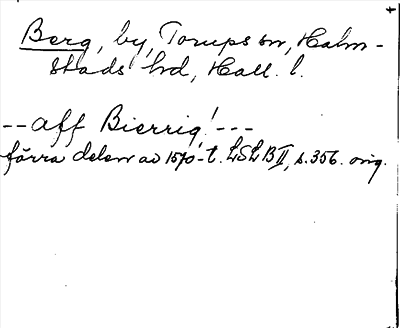 Berg, by, Torups sn, Halm-
stads hd, Hall. l.
--aff Bierrig!---
förra delen av 1570-t. LSLB II, s. 356. orig.